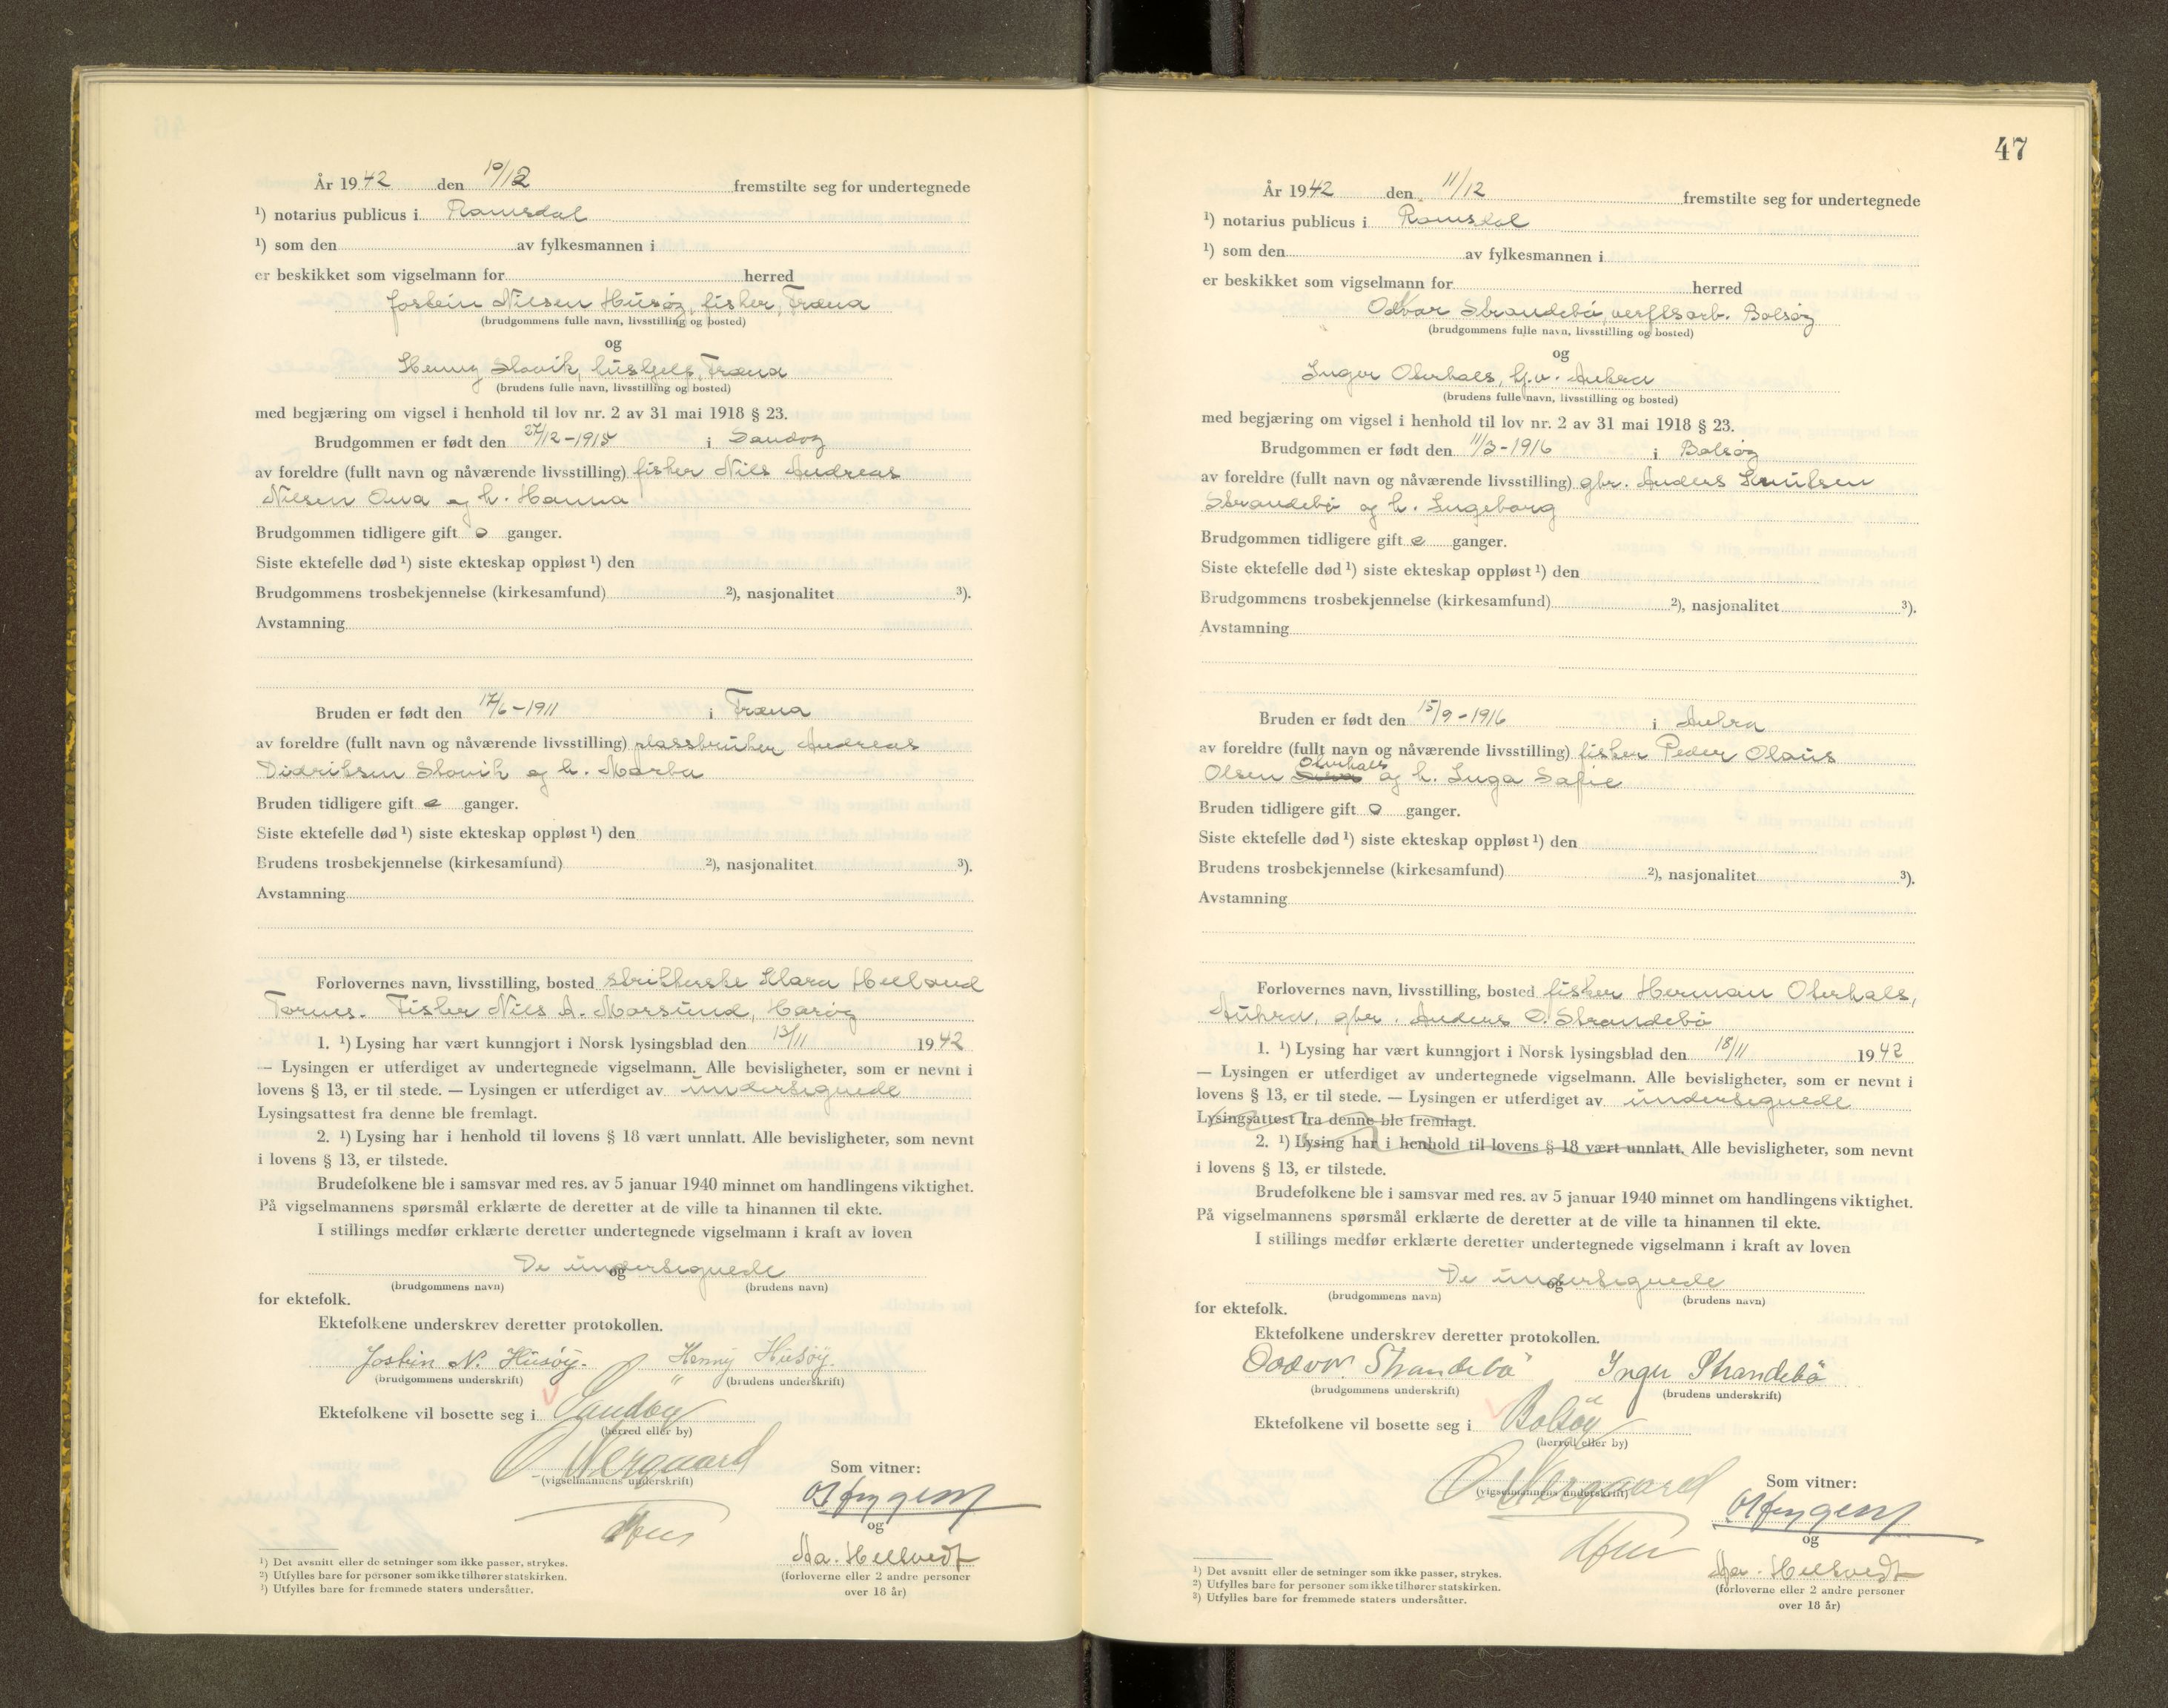 År 1942 den 10/12 fremstilte seg for undertegnede
¹) notarius publicus i Romsdal
¹) som den av fylkesmannen i
er beskikket som vigselmann for herred
Jostein Nilsen Husøy, fisker, Fræna
(brudgommens fulle navn, livsstilling og bosted)
og
Henny Slovik, hushjelp, Fræna
(brudens fulle navn, livsstilling og bosted)
med begjæring om vigsel i henhold til lov nr. 2 av 31 mai 1918 § 23.
Brudgommen er født den 27/12-1915 i Sandøy
av foreldre (fullt navn og nåværende livsstilling) fisker Nils Andreas
Nilsen Ona og h. Hanna
Brudgommen tidligere gift 0 ganger.
Siste ektefelle død ¹) siste ekteskap oppløst ¹) den
Brudgommens trosbekjennelse (kirkesamfund) ²), nasjonalitet ³).
Avstamning
Bruden er født den 17/6-1911 i Fræna
av foreldre (fullt navn og nåværende livsstilling) plassbruker Andreas
Didriksen Slovik og h. Marta
Bruden tidligere gift 0 ganger.
Siste ektefelle død ¹) siste ekteskap oppløst ¹) den
Brudens trosbekjennelse (kirkesamfund) ²), nasjonalitet ³).
Avstamning
Forlovernes navn, livsstilling, bosted strikkerske Klara Helland
Tornes. Fisker Nils A. Morsund, Harøy
1. ¹) Lysing har vært kunngjort i Norsk lysingsblad den 13/11 1942
— Lysingen er utferdiget av undertegnede vigselmann. Alle bevisligheter, som er nevnt i
lovens § 13, er til stede. — Lysingen er utferdiget av undertegnede
Lysingsattest fra denne ble fremlagt.
2. ¹) Lysing har i henhold til lovens § 18 vært unnlatt. Alle bevisligheter, som nevnt
i lovens § 13, er tilstede.
Brudefolkene ble i samsvar med res. av 5 januar 1940 minnet om handlingens viktighet.
På vigselmannens spørsmål erklærte de deretter at de ville ta hinannen til ekte.
I stillings medfør erklærte deretter undertegnede vigselmann i kraft av loven
De undertegnede
og
(brudgommens navn) (brudens navn)
for ektefolk.
Ektefolkene underskrev deretter protokollen.
Jostein N. Husøy. Henny Husøy.
(brudgommens underskrift) (brudens underskrift)
Ektefolkene vil bosette seg i Sandøy
(herred eller by)
O. Nergaard
(vigselmannens underskrift)
Som vitner:
og
Aa. Hellsvedt
(forloverne eller 2 andre personer
over 18 år)
¹) Det avsnitt eller de setninger som ikke passer, strykes.
²) Utfylles bare for personer som ikke tilhører statskirken.
³) Utfylles bare for fremmede staters undersåtter.
47
År 1942 den 11/12 fremstilte seg for undertegnede
¹) notarius publicus i Romsdal
¹) som den av fylkesmannen i
er beskikket som vigselmann for herred
Odvar Strandebø, verftsarb. Bolsøy
(brudgommens fulle navn, livsstilling og bosted)
og
Inger Oterhals, hj.v. Aukra
(brudens fulle navn, livsstilling og bosted)
med begjæring om vigsel i henhold til lov nr. 2 av 31 mai 1918 § 23.
Brudgommen er født den 11/3-1916 i Bolsøy
av foreldre (fullt navn og nåværende livsstilling) gbr. Anders Knutsen
Strandebø og h. Ingeborg
Brudgommen tidligere gift 0 ganger.
Siste ektefelle død ¹) siste ekteskap oppløst ¹) den
Brudgommens trosbekjennelse (kirkesamfund) ²), nasjonalitet ³).
Avstamning
Bruden er født den 15/9-1916 i Aukra
av foreldre (fullt navn og nåværende livsstilling) fisker Peder Olaus
Olsen Oterhals og h. Inga Sofie
Bruden tidligere gift 0 ganger.
Siste ektefelle død ¹) siste ekteskap oppløst ¹) den
Brudens trosbekjennelse (kirkesamfund) ²), nasjonalitet ³).
Avstamning
Forlovernes navn, livsstilling, bosted fisker Herman Oterhals,
Aukra, gbr. Anders O. Strandebø
1. ¹) Lysing har vært kunngjort i Norsk lysingsblad den 18/11 1942
— Lysingen er utferdiget av undertegnede vigselmann. Alle bevisligheter, som er nevnt i
lovens § 13, er til stede. — Lysingen er utferdiget av undertegnede
Lysingsattest fra denne ble fremlagt.
2. ¹) Lysing har i henhold til lovens § 18 vært unnlatt. Alle bevisligheter, som nevnt
i lovens § 13, er tilstede.
Brudefolkene ble i samsvar med res. av 5 januar 1940 minnet om handlingens viktighet.
På vigselmannens spørsmål erklærte de deretter at de ville ta hinannen til ekte.
I stillings medfør erklærte deretter undertegnede vigselmann i kraft av loven
De undertegnede
og
(brudgommens navn) (brudens navn)
for ektefolk.
Ektefolkene underskrev deretter protokollen.
Oddvar Strandebø Inger Strandebø
(brudgommens underskrift) (brudens underskrift)
Ektefolkene vil bosette seg i Bolsøy
(herred eller by)
O. Nergaard
(vigselmannens underskrift)
Som vitner:
og
Aa. Hellsvedt
(forloverne eller 2 andre personer
over 18 år)
¹) Det avsnitt eller de setninger som ikke passer, strykes.
²) Utfylles bare for personer som ikke tilhører statskirken.
³) Utfylles bare for fremmede staters undersåtter.